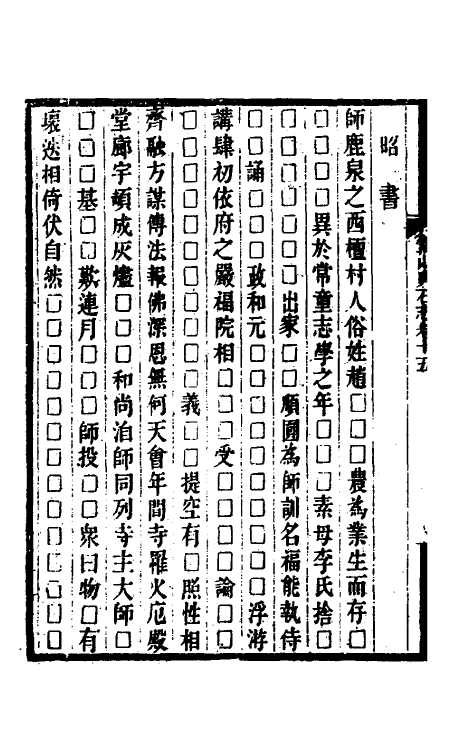 昭書
師鹿泉之西檀村人俗姓趙□□□農為業生而存□
□□□□異於常童志學之年□□□素母李氏捨□
□□□□□□□出家□□□順圓為師訓名福能執侍
□□誦□□□政和元□□□□□□□□□□□浮游
講肆初依府之嚴福院相□□□受□□□□論□□
□□□□□□□□□□□義□□提空有□照性相
齊融方謀傳法報佛深恩無何天會年間寺罹火厄殿
堂廊宇頓成灰燼□□□和尚洎師同列寺主大師□
□□□基□□歎連月□□□師投□□衆曰物□有
壞迭相倚伏自然□□□□□□□□□□□□□□